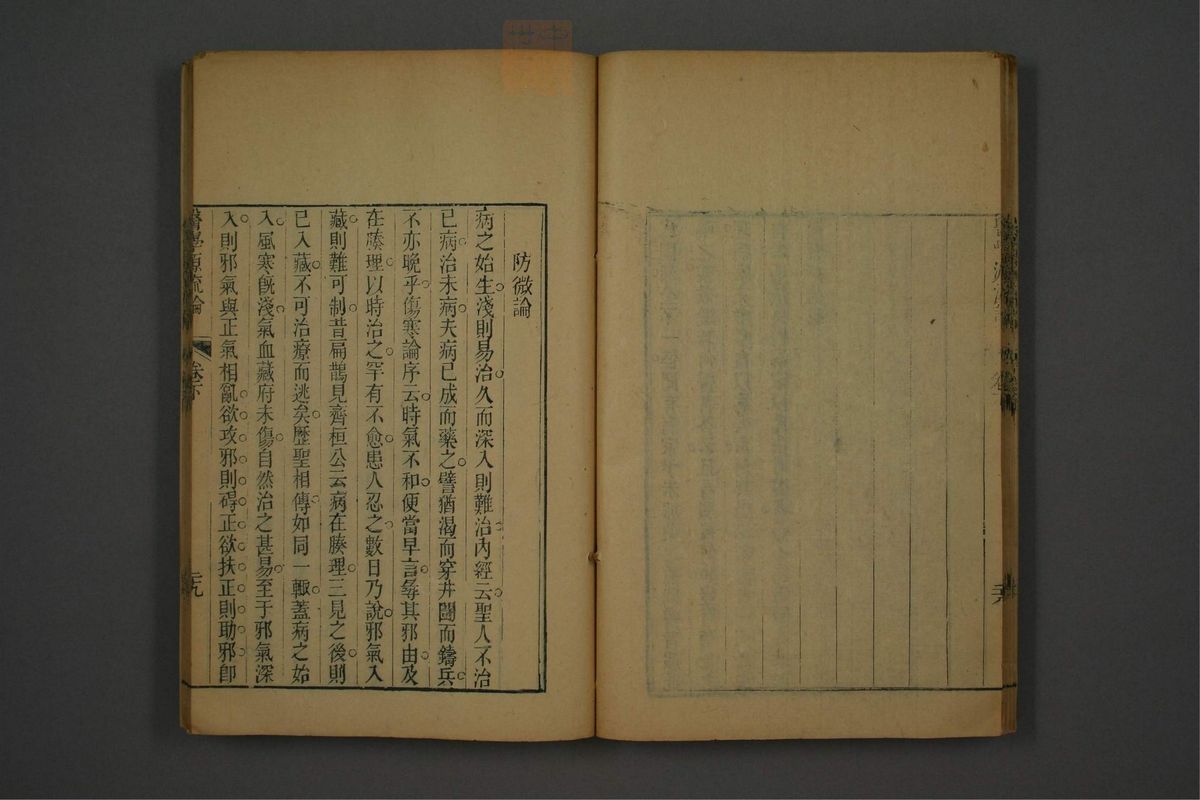 防微論
病之始生淺則易治久而深入則難治內經云聖人不治
已病治未病夫病已成而藥之譬猶渴而穿井鬪而鑄兵
不亦晚乎傷寒論序云時氣不和便當早言尋其邪由及
在腠理以時治之罕有不愈患人忍之數日乃說邪氣入
藏則難可制昔扁鵲見齊桓公云病在腠理三見之後則
已入藏不可治療而逃矣歷聖相傳如同一轍蓋病之始
入風寒旣淺氣血藏府未傷自然治之甚易至于邪氣深
入則邪氣與正氣相亂欲攻邪則碍正欲扶正則助邪卽
醫學源流論
卷下